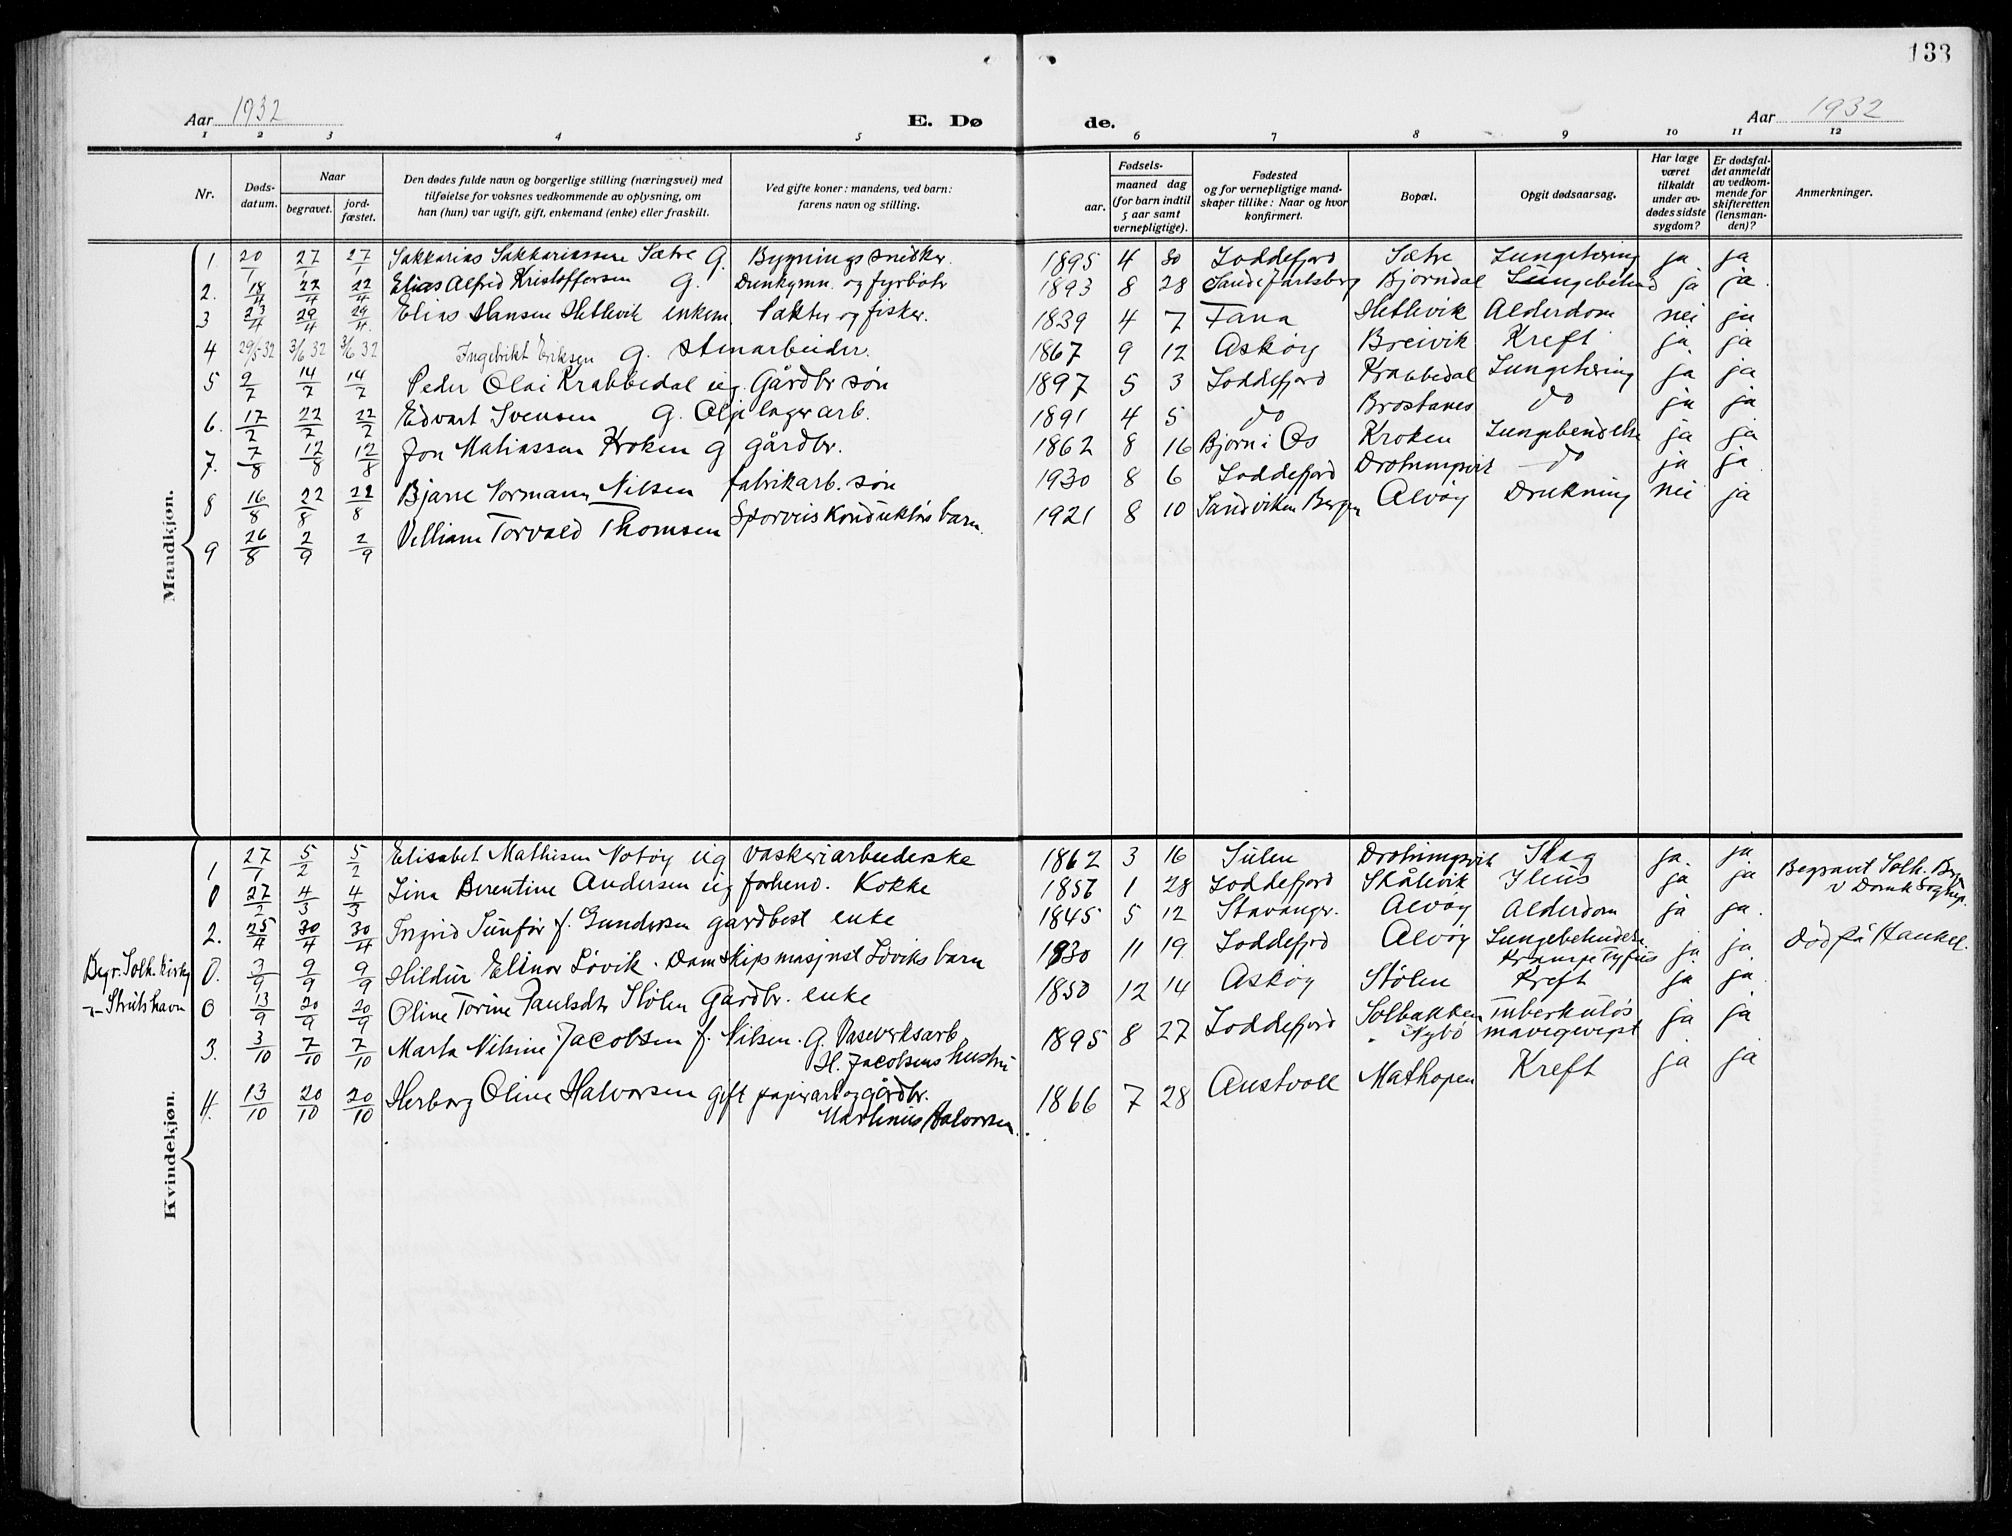 133
Aar 1932 E. Dø de. Aar 1932
1 2 3 4 5 6 7 8 9 10 11 12
Nr. Døds-datum. Naar begravet. jord-fæstet. Den dødes fulde navn og borgerlige stilling (næringsvei) med tilføielse for voksnes vedkommende av oplysning, om han (hun) var ugift, gift, enkemand (enke) eller fraskilt. Ved gifte koner: mandens, ved barn: farens navn og stilling. Fødsels- aar. maaned dag (for barn indtil 5 aar samt vernepligtige). Fødested og for vernepligtige mand-skaper tillike: Naar og hvor konfirmert. Bopæl. Opgit dødsaarsag. Har læge været tilkaldt under av-dødes sidste sygdom? Er dødsfal-det anmeldt av vedkom-mende for skifteretten (lensman-den)? Anmerkninger.
Mandkjøn.
1 20/1 27/1 27/1 Sakkarias Sakkariassen Sætre G. Bygningssnedker. 1895 4 30 Loddefjord Sætre Lungetæring ja ja
2. 18/4 22/4 22/4 Elias Alfred Kristoffersen G. Dunkymn. og fyrbøtr 1893 8 28 Sande Jarlsberg Bjørndal Lungebetend ja ja.
3 23/4 29/4 29/4 Elias Hansen Hetlevik enkem. Pakter og fisker. 1839 4 7 Fana Hetlevik Alderdom nei ja
4 29/5-32 3/6 32 3/6 32 Ingebrikt Eriksen G. Stenarbeider. 1867 9 12 Askøy Breivik Kreft ja ja
5 9/7 14/7 14/7 Peder Olai Krabbedal ug. Gårdbr søn 1897 5 3 Loddefjord Krabbedal Lungetæring ja ja
6. 17/7 22/7 22/7 Edvart Svensen G. Oljelagerarb. 1891 4 5 do Brostanes do ja ja
7. 7/8 12/8 12/8 Jon Matiassen Kroken G gårdbr. 1862 8 16 Bjørn i Os Kroken Lungebendelse ja ja
8 16/8 22/8 22/8 Bjarne Normann Nilsen fabrikarb. søn 1930 8 6 Loddefjord Drotningsvik do ja ja
9 26/8 2/9 2/9 Villiam Torvald Thomsen Sporveiskonduktørs barn. 1921 8 10 Sandviken Bergen Alvøy Drukning nei ja
Kvindekjøn.
1 27/1 5/2 5/2 Elisabet Mathisen Notøy ug vaskeriarbeiderske 1862 3 16 Sulen Drotningsvik Slag ja. ja
0 27/2 4/3 4/3 Lina Berentine Andersen ug forhenv. Kokke 1857 1 28 Loddefjord Skålevik Ileus ja ja Begravet Solh. Bgn v Domk Sogpr.
2. 25/4 30/4 30/4 Ingrid Sunfør f. Gundersen gardbest enke 1845 5 12 Stavanger. Alvøy Alderdom ja ja.
Begr. Solh. kirkg 0. 3/9 9/9 9/9 Hildur Elinor Løvik. Damskipsmasjinst Løviks barn 1930 11 19 Loddefjord Alvøy Lungebetendelse ja ja. død på Haukel.
-"- Strutshavn 0 13/9 20/9 20/9 Oline Torine Paulsdtr Stølen Gardbr. enke 1850 12 14 Askøy Stølen Kreft ja ja
3. 3/10 7/10 7/10 Marta Nilsine Jacobsen f. Nilsen. G. Vaseverksarb H. Jacobsens hustru 1895 8 27 Loddefjord Solbakken i Nybø Tuberkuløs ja ja
4. 13/10 20/10 20/10 Herborg Oline Halvorsen gift papirarb og gårdbr. Martinius Halvorsen. 1866 7 28 Austvoll Mathopen Kreft ja ja